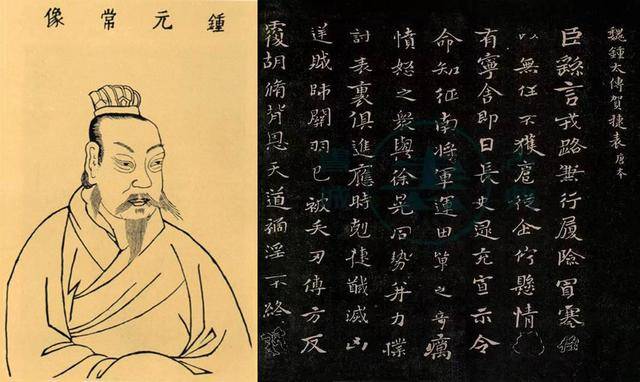 鍾元常像
魏鍾太傅賀捷表唐本
臣繇言戎路兼行履險冒寒臣
以無任不獲扈從企佇懸情
有寧舍即日長史逯充宣示令
命知征南將軍運田單之奇厲
憤怒之眾與徐晃同勢并力撲
討表裏俱進應時剋捷馘滅凶
逆賊帥關羽已被矢刃傅方反
覆胡脩背恩天道禍淫不終